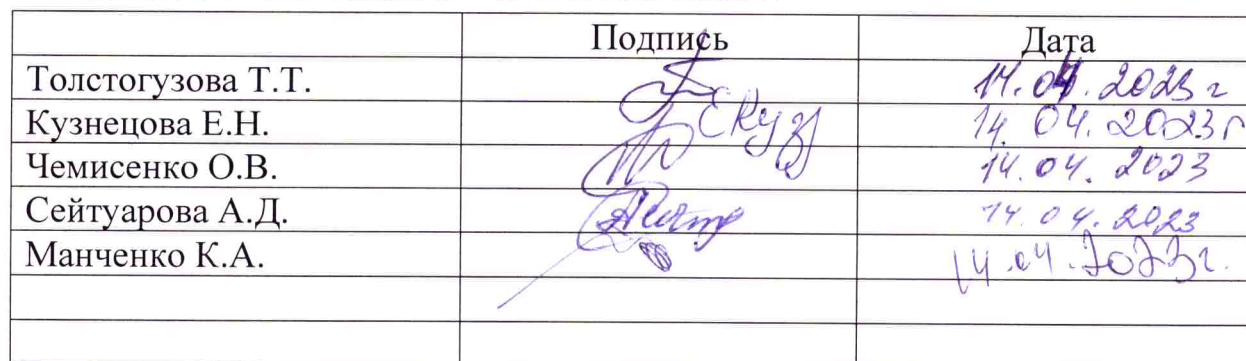 Подпись Дата
Толстогузова Т.Т. 14.04.2023 г
Кузнецова Е.Н. ЕКуз 14.04.2023 г
Чемисенко О.В. 14.04.2023
Сейтуарова А.Д. 14.04.2023
Манченко К.А. 14.04.2023 г.